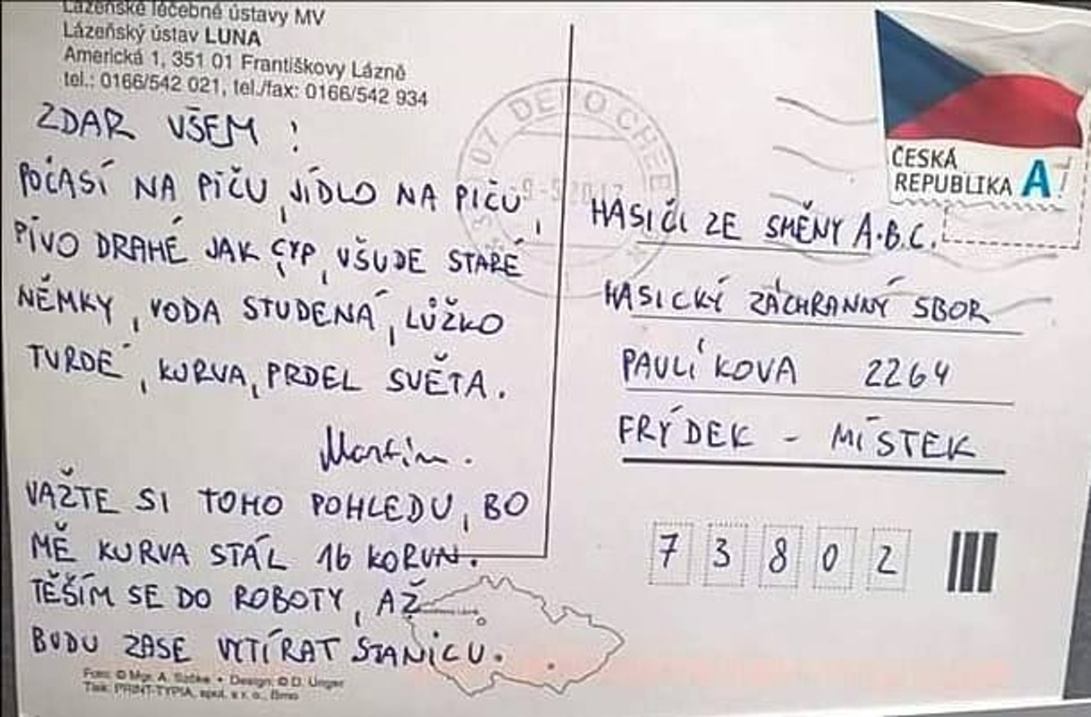 Lázeňské léčebné ústavy MV
Lázeňský ústav LUNA
Americká 1, 351 01 Františkovy Lázně
tel.: 0166/542 021, tel./fax: 0166/542 934
ZDAR VŠEM !
POČASÍ NA PIČU, JÍDLO NA PIČU,
PIVO DRAHÉ JAK CYP, VŠUDE STARÉ
NĚMKY, VODA STUDENÁ, LŮŽKO
TVRDÉ, KURVA, PRDEL SVĚTA.
Martin.
VAŽTE SI TOHO POHLEDU, BO
MĚ KURVA STÁL 16 KORUN.
TĚŠÍM SE DO ROBOTY, AŽ
BUDU ZASE VYTÍRAT STANICU.
Foto: © Mgr. A. • Design: © D. Unger
Tisk: PRINT-TYPIA, spol. s r. o., Brno
DEPO CHEB
ČESKÁ
REPUBLIKA A
HASIČI ZE SMĚNY A.B.C.
HASICKÝ ZÁCHRANNÝ SBOR
PAVLÍKOVA 2264
FRÝDEK - MÍSTEK
73802